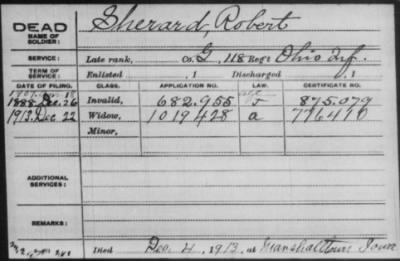 DEAD Sherard, Robert
NAME OF SOLDIER:
SERVICE: Late rank, Co. G, 118 Reg't Ohio Inf.
TERM OF SERVICE: Enlisted , 1 Discharged , 1
DATE OF FILING. CLASS. APPLICATION NO. LAW. CERTIFICATE NO.
1888 Dec. 26 Invalid, 682.955 875.079
1913 Dec 22 Widow, 1019428 a
Minor,
ADDITIONAL SERVICES:
REMARKS:
Died Dec. 4, 1913, at Marshalltown Iowa